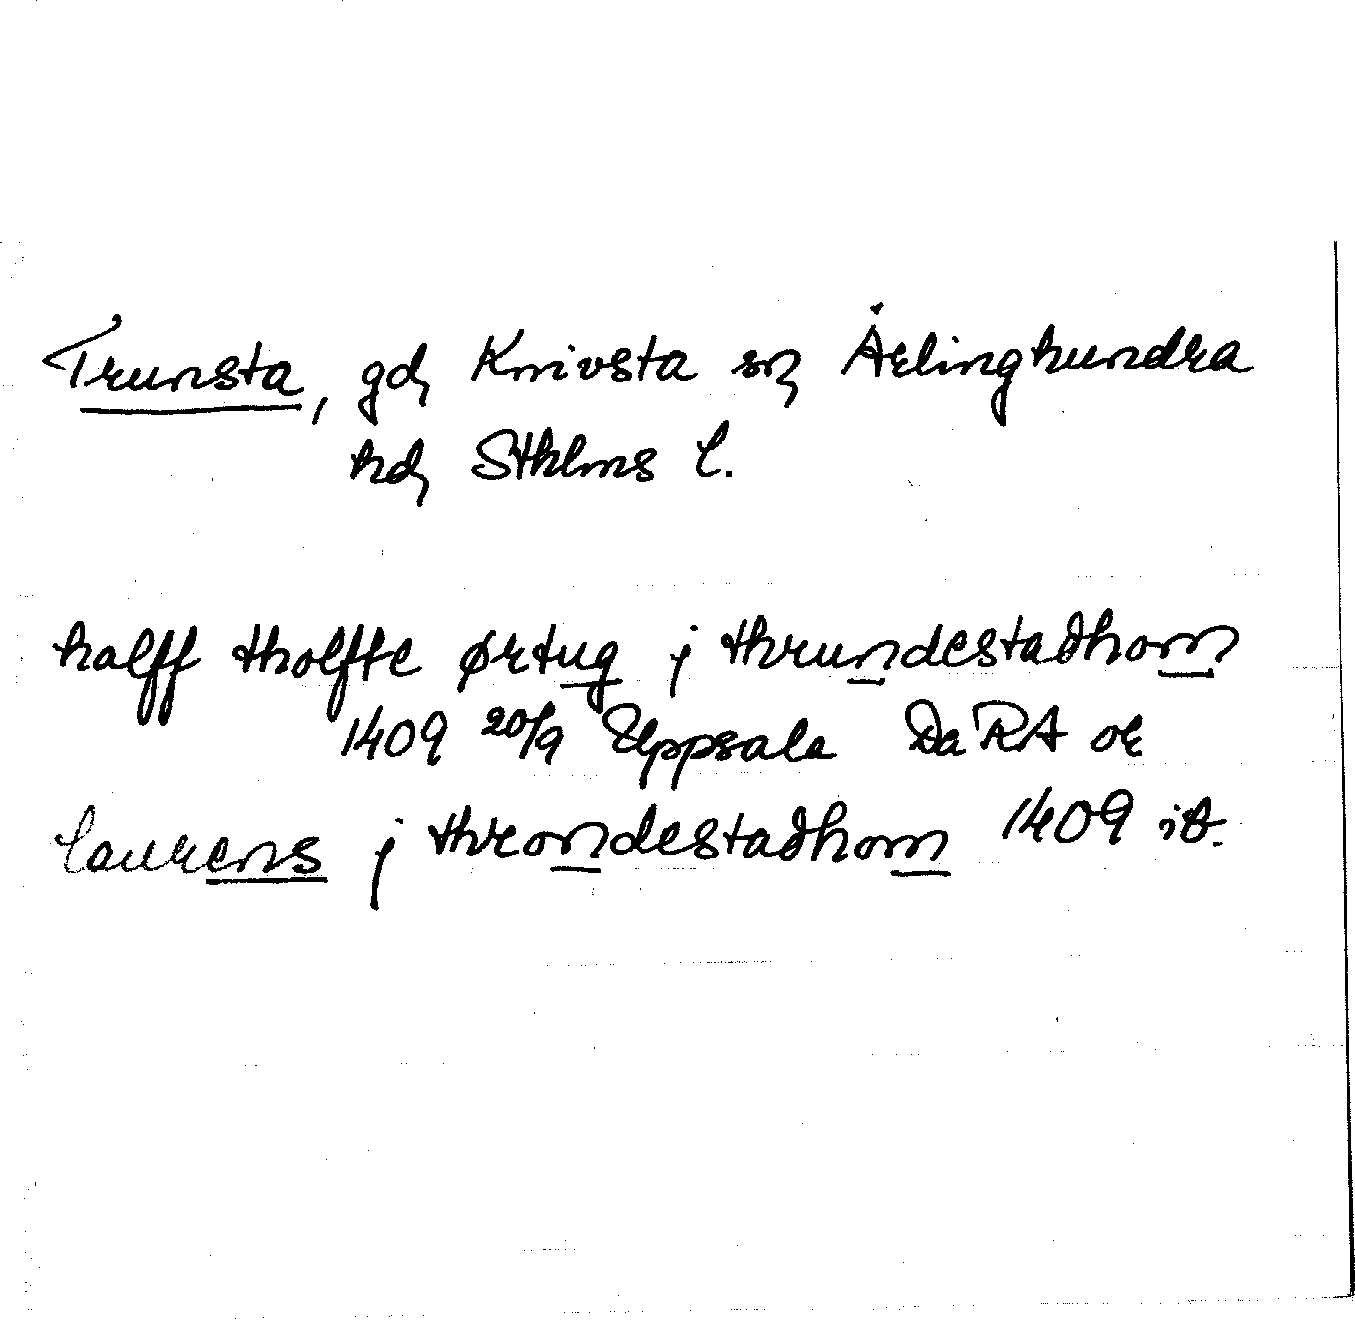 Trunsta, gd, Knivsta sn, Ärlinghundra
hd, Sthlms l.
halff tholffte ørtug j thrundestadhom
1409 20/9 Uppsala Da RA or
laurens j throndestadhom 1409 ib.